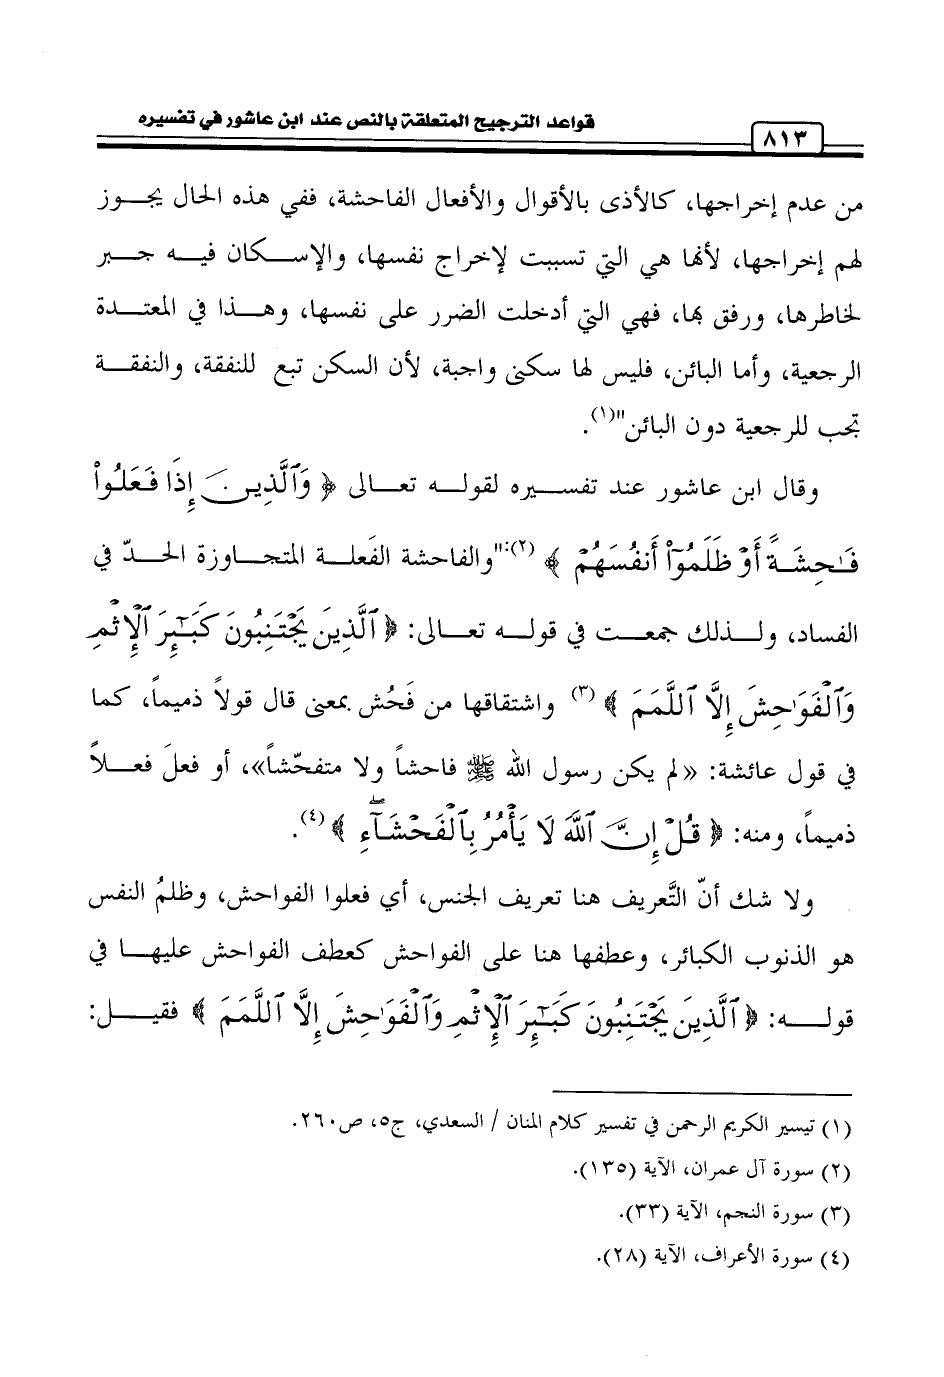 قواعد الترجيح المتعلقة بالنص عند ابن عاشور في تفسيره
٨١٣
من عدم إخراجها، كالأذى بالأقوال والأفعال الفاحشة، ففي هذه الحال يجوز
لهم إخراجها، لأنها هي التي تسببت لإخراج نفسها، والإسكان فيه جبر
لخاطرها، ورفق بها، فهي التي أدخلت الضرر على نفسها، وهذا في المعتدة
الرجعية، وأما البائن، فليس لها سكنى واجبة، لأن السكن تبع للنفقة، والنفقة
تجب للرجعية دون البائن"(١).
وقال ابن عاشور عند تفسيره لقوله تعالى ﴿ وَٱلَّذِينَ إِذَا فَعَلُوا۟
فَـٰحِشَةً أَوْ ظَلَمُوٓا۟ أَنفُسَهُمْ ﴾ (٢):"والفاحشة الفَعلة المتجاوزة الحدّ في
الفساد، ولذلك جمعت في قوله تعالى: ﴿ ٱلَّذِينَ يَجْتَنِبُونَ كَبَـٰٓئِرَ ٱلْإِثْمِ
وَٱلْفَوَٰحِشَ إِلَّا ٱللَّمَمَ ﴾ (٣) واشتقاقها من فَحُش بمعنى قال قولاً ذميماً، كما
في قول عائشة: «لم يكن رسول الله ﷺ فاحشاً ولا متفحّشاً»، أو فعلَ فعلاً
ذميماً، ومنه: ﴿ قُلْ إِنَّ ٱللَّهَ لَا يَأْمُرُ بِٱلْفَحْشَآءِ ۖ ﴾ (٤).
ولا شك أنّ التَّعريف هنا تعريف الجنس، أي فعلوا الفواحش، وظلمُ النفس
هو الذنوب الكبائر، وعطفها هنا على الفواحش كعطف الفواحش عليها في
قوله: ﴿ ٱلَّذِينَ يَجْتَنِبُونَ كَبَـٰٓئِرَ ٱلْإِثْمِ وَٱلْفَوَٰحِشَ إِلَّا ٱللَّمَمَ ﴾ فقيل:
(١) تيسير الكريم الرحمن في تفسير كلام المنان / السعدي، ج٥، ص٢٦٠.
(٢) سورة آل عمران، الآية (١٣٥).
(٣) سورة النجم، الآية (٣٣).
(٤) سورة الأعراف، الآية (٢٨).